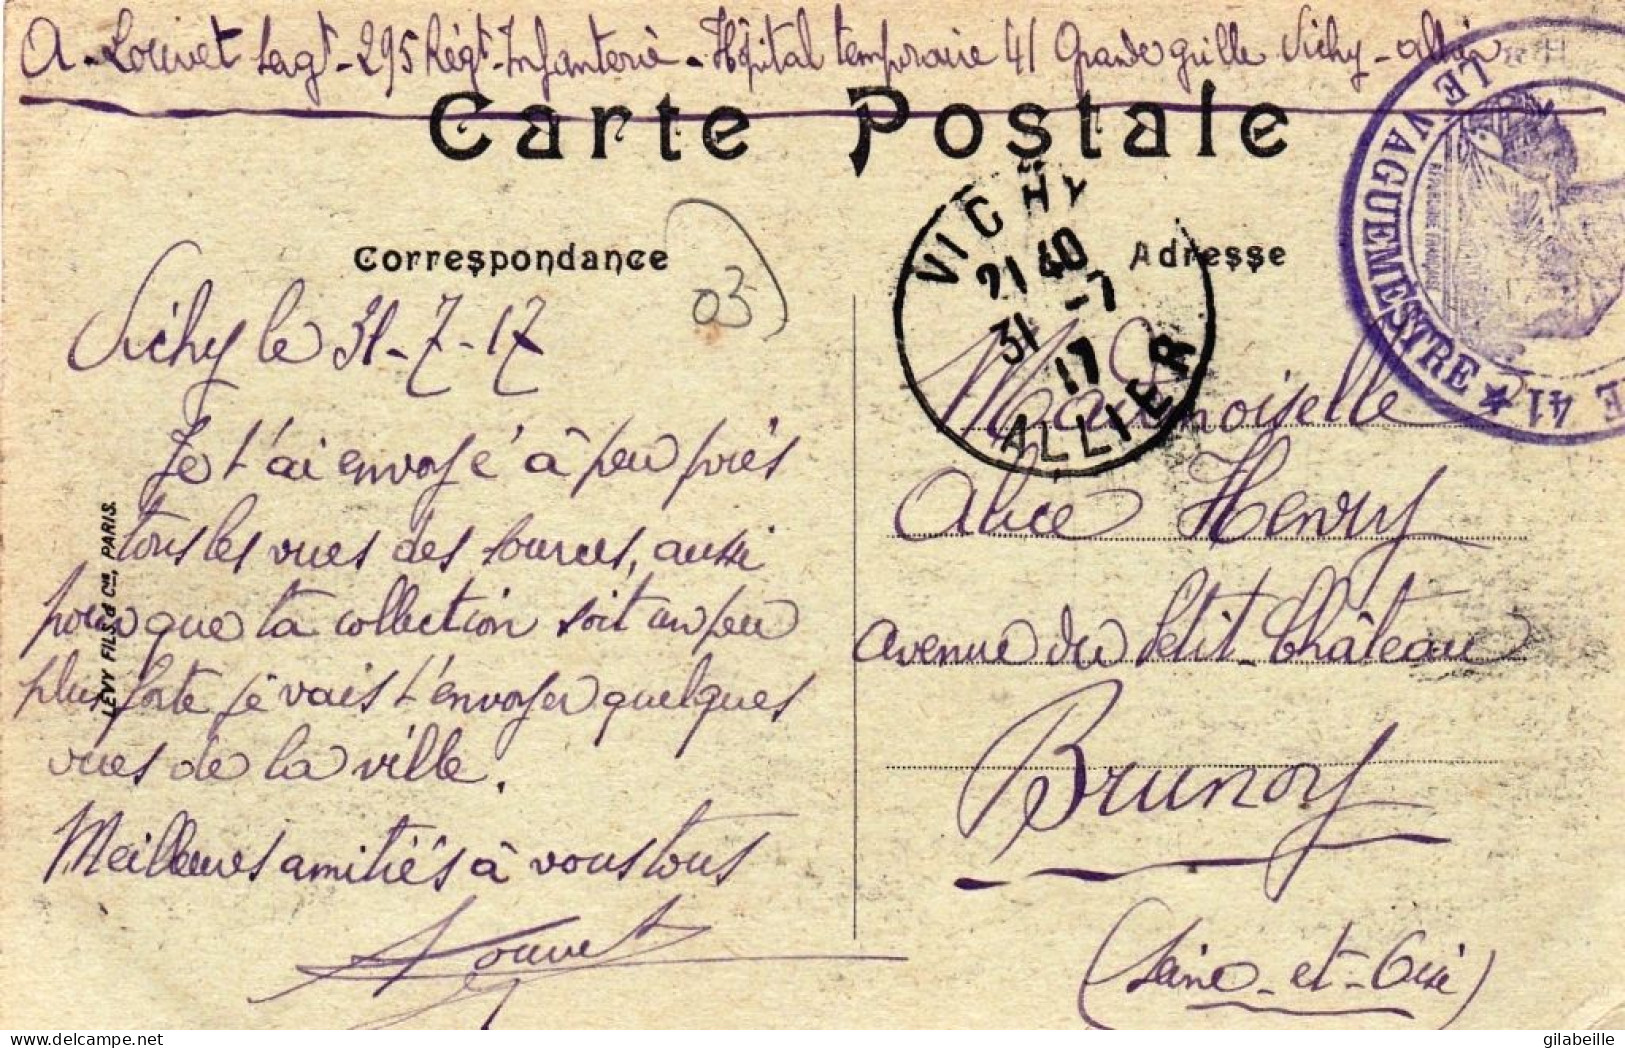 A. Louvet Sagt - 295 Régt Infanterie - Hôpital temporaire 41 Grande grille Vichy - Allier
Carte Postale
Correspondance
Adresse
03
Vichy le 31-7-17
Je t'ai envoyé à peu près
tous les vues des sources, aussi
pour que ta collection soit un peu
plus forte je vais t'envoyer quelques
vues de la ville.
Meilleures amitiés à vous tous
Louvet
LEVY FILS & Cie, PARIS.
VICHY
21 40
31 -7
17
ALLIER
LE VAGUEMESTRE
REPUBLIQUE FRANÇAISE
E 41
Mademoiselle
Alice Henry
avenue du Petit-Château
Brunoy
(Seine-et-Oise)
delcampe.net
gilabeille